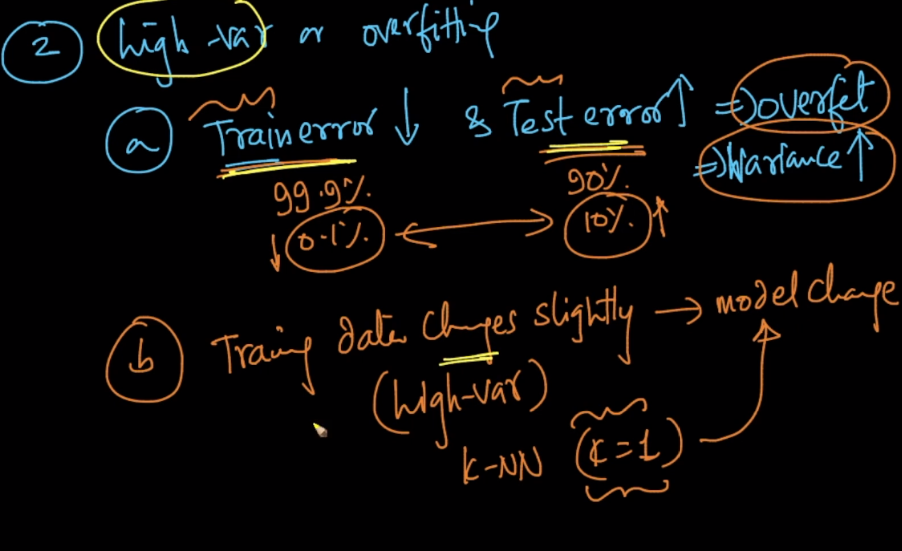 2 high-var or overfitting
a Train error ↓ & Test error ↑ ⇒ overfit
⇒ Variance ↑
99.9% 90%
↓ 0.1% ↔ 10% ↑
b Traing data changes slightly → model change
(high-var)
K-NN (K=1)